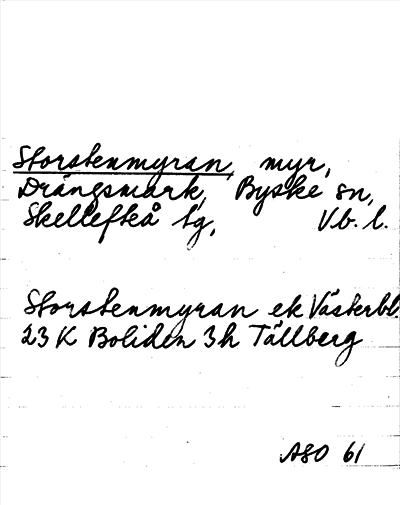 Storstenmyran, myr,
Drängsmark, Byske sn,
Skellefteå tg, Vb. l.
Storstenmyran ek Västerbl.
23 K Boliden 3h Tällberg
ASO 61